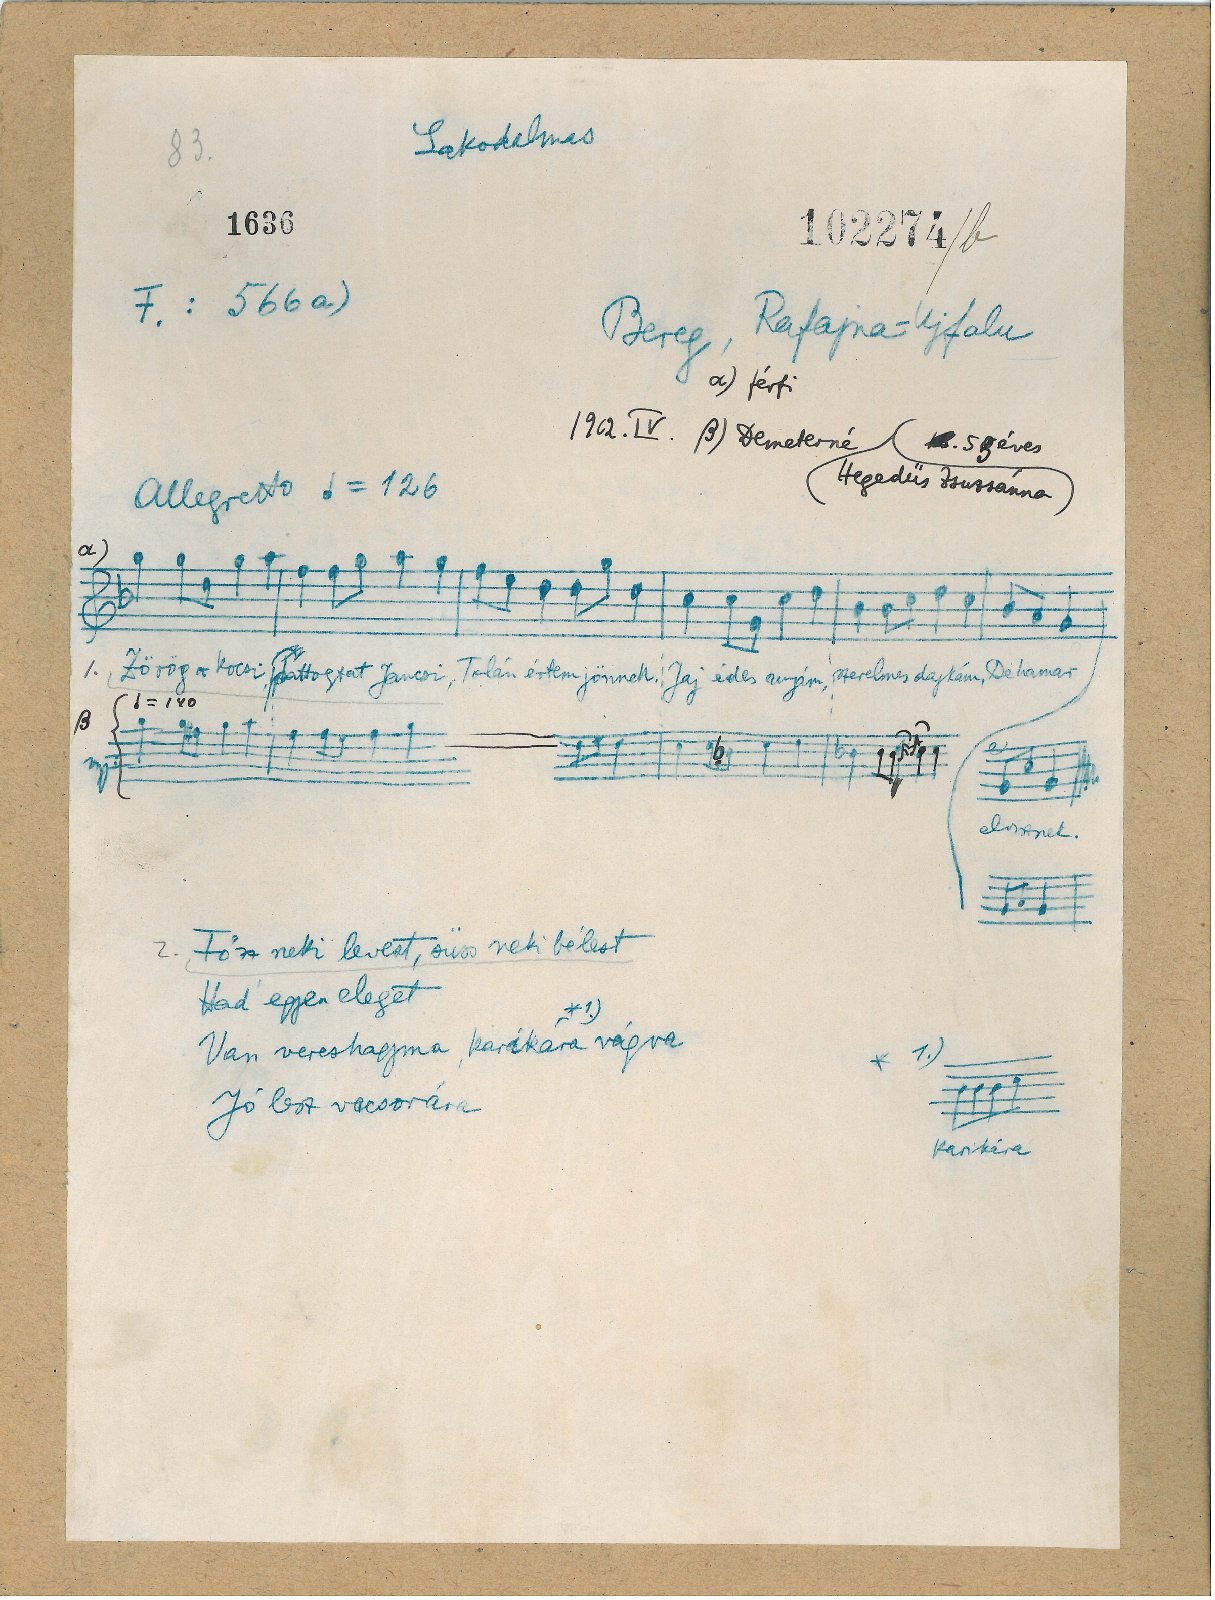 83.
Lakodalmas
1636
102274/b
F. : 566 a)
Bereg, Rafajna=Ujfalu
α) férfi
1912. IV. β) Demeterné
59 éves
Hegedüs Zsuzsánna
Allegretto = 126
α)
1. Zörög a kocsi, pattogtat Jancsi, Talán értem jönnek. Jaj édes anyám, szerelmes dajkám, De hamar
= 140
β
elvisznek.
2. Főzz neki levest, süss neki bélest
Had' egyen eleget
*1.)
Van vereshagyma, karikára vágva
Jó lesz vacsorára
* 1.)
karikára